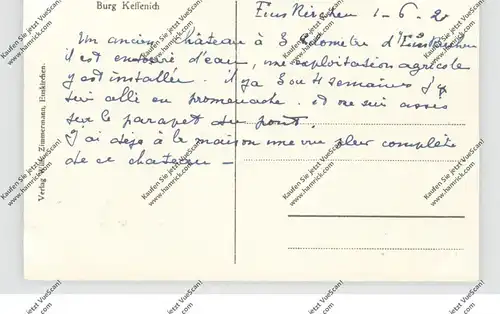 Burg Keffenich
Euskirchen 1-6-2
Un ancien château à 3 kilomètres d'Euskirchen
il est entouré d'eau, une exploitation agricole
y est installée. il y a 3 ou 4 semaines j'y
suis allé en promenade. et me suis assis
sur le parapet du pont.
J'ai déjà à la maison une vue plus complète
de ce chateau -
Verlag Zimmermann, Euskirchen.
Kaufen Sie jetzt VueScan!
www.hamrick.com